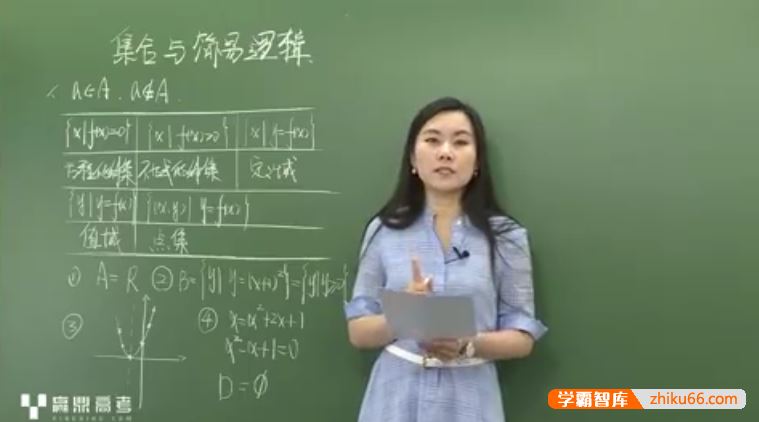 集合与简易逻辑
a∈A. a∉A.
{x|f(x)=0} {x|f(x)>0} {x|y=f(x)}
方程的解集 不等式的解集 定义域
{y|y=f(x)} {(x,y)|y=f(x)}
值域 点集
① A=R ② B={y|y=(x+1)²}={y|y≥0}
③
④ x=x²+2x+1
x²-x+1=0
D=∅
赢鼎高考
YINGDING.COM
学霸智库 zhiku66.com